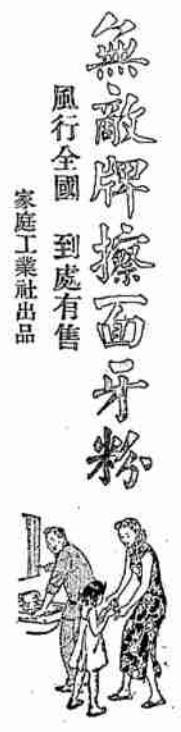 無敵牌擦面牙粉
風行全國 到處有售
家庭工業社出品